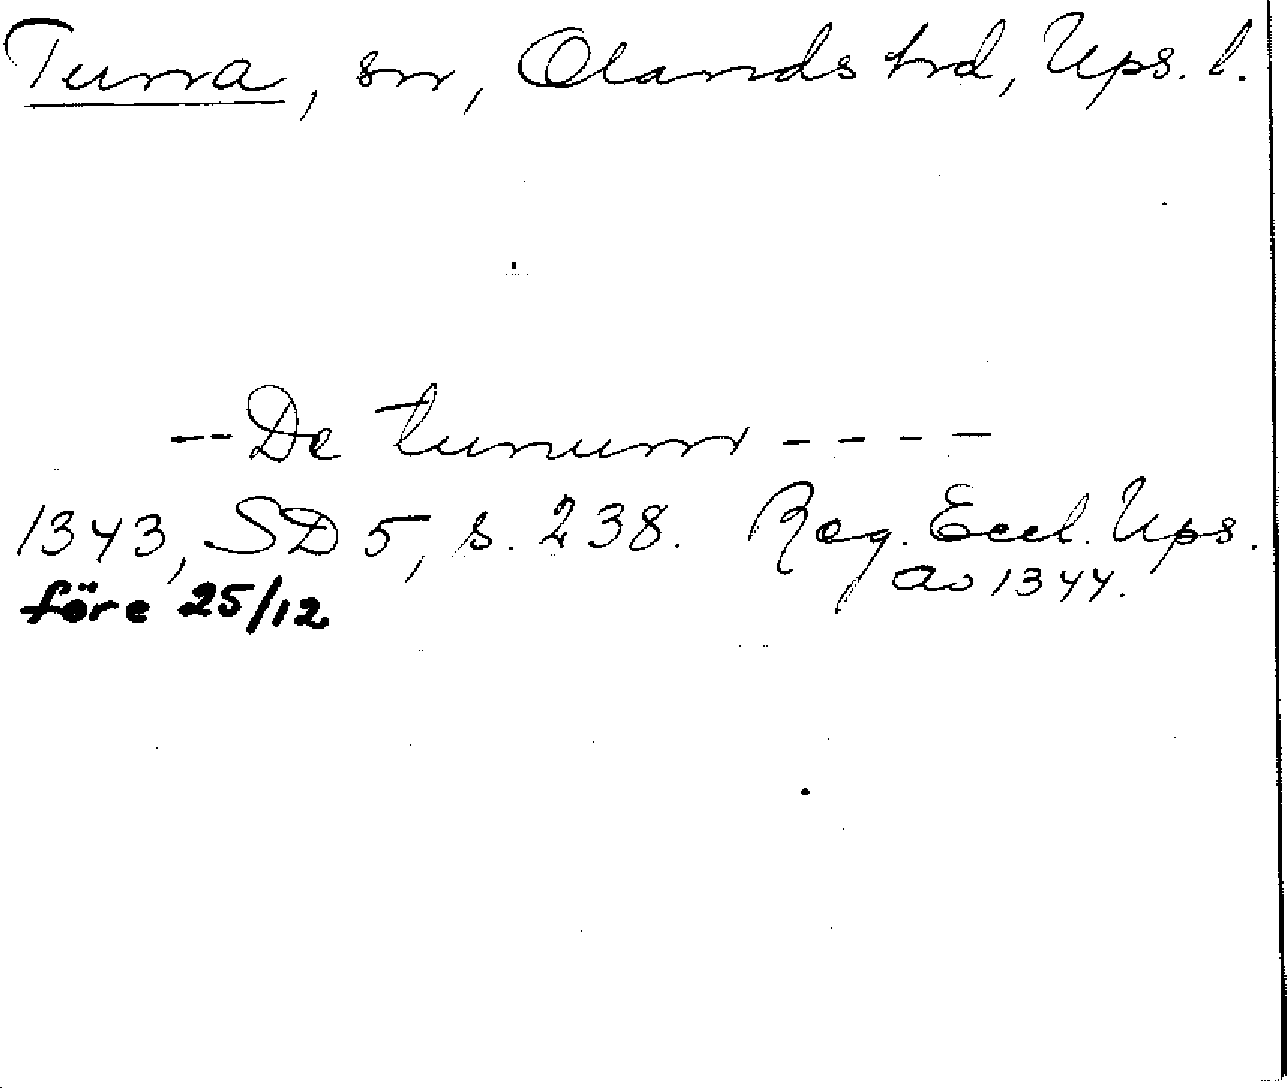 Tuna, sn, Olands hd, Ups. l.
-- De tunum - - - -
1343, SD 5, s. 238. Reg. Eccl. Ups.
av 1344.
före 25/12